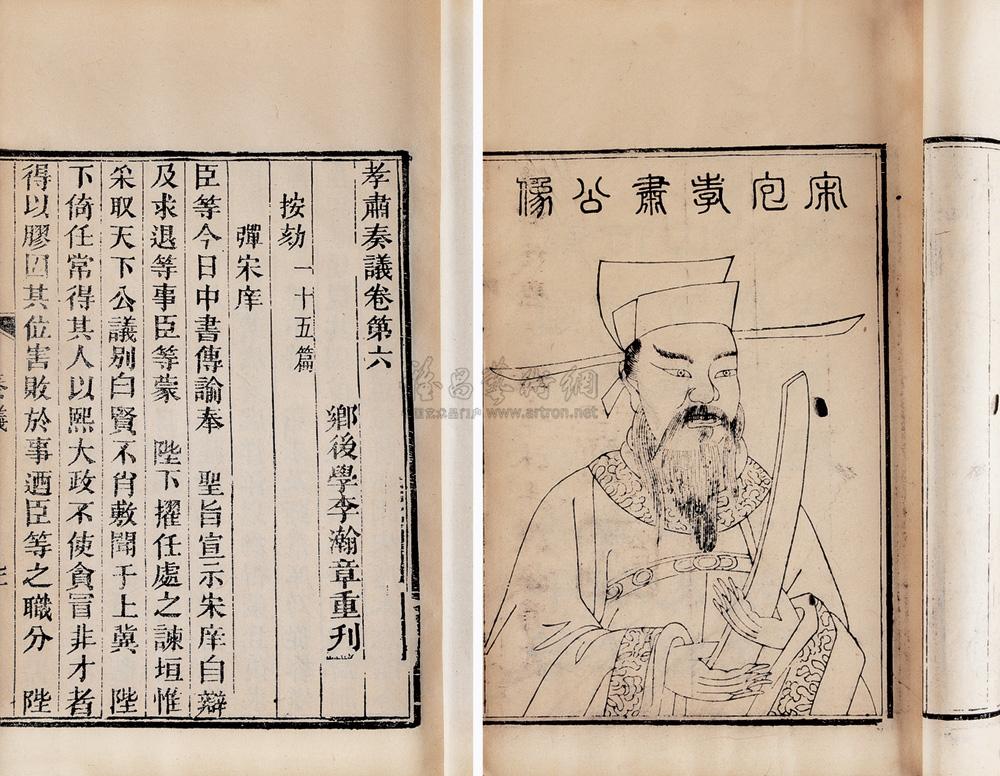 孝肅奏議卷第六
鄉後學李瀚章重刋
按劾 一十五篇
彈宋庠
臣等今日中書傳諭奉 聖旨宣示宋庠自辯
及求退等事臣等蒙 陛下擢任處之諫垣惟
采取天下公議別白賢不肖敷聞于上冀 陛
下倚任常得其人以熙大政不使貪冒非才者
得以膠固其位害敗於事迺臣等之職分 陛
宋包孝肅公像
www.artron.net